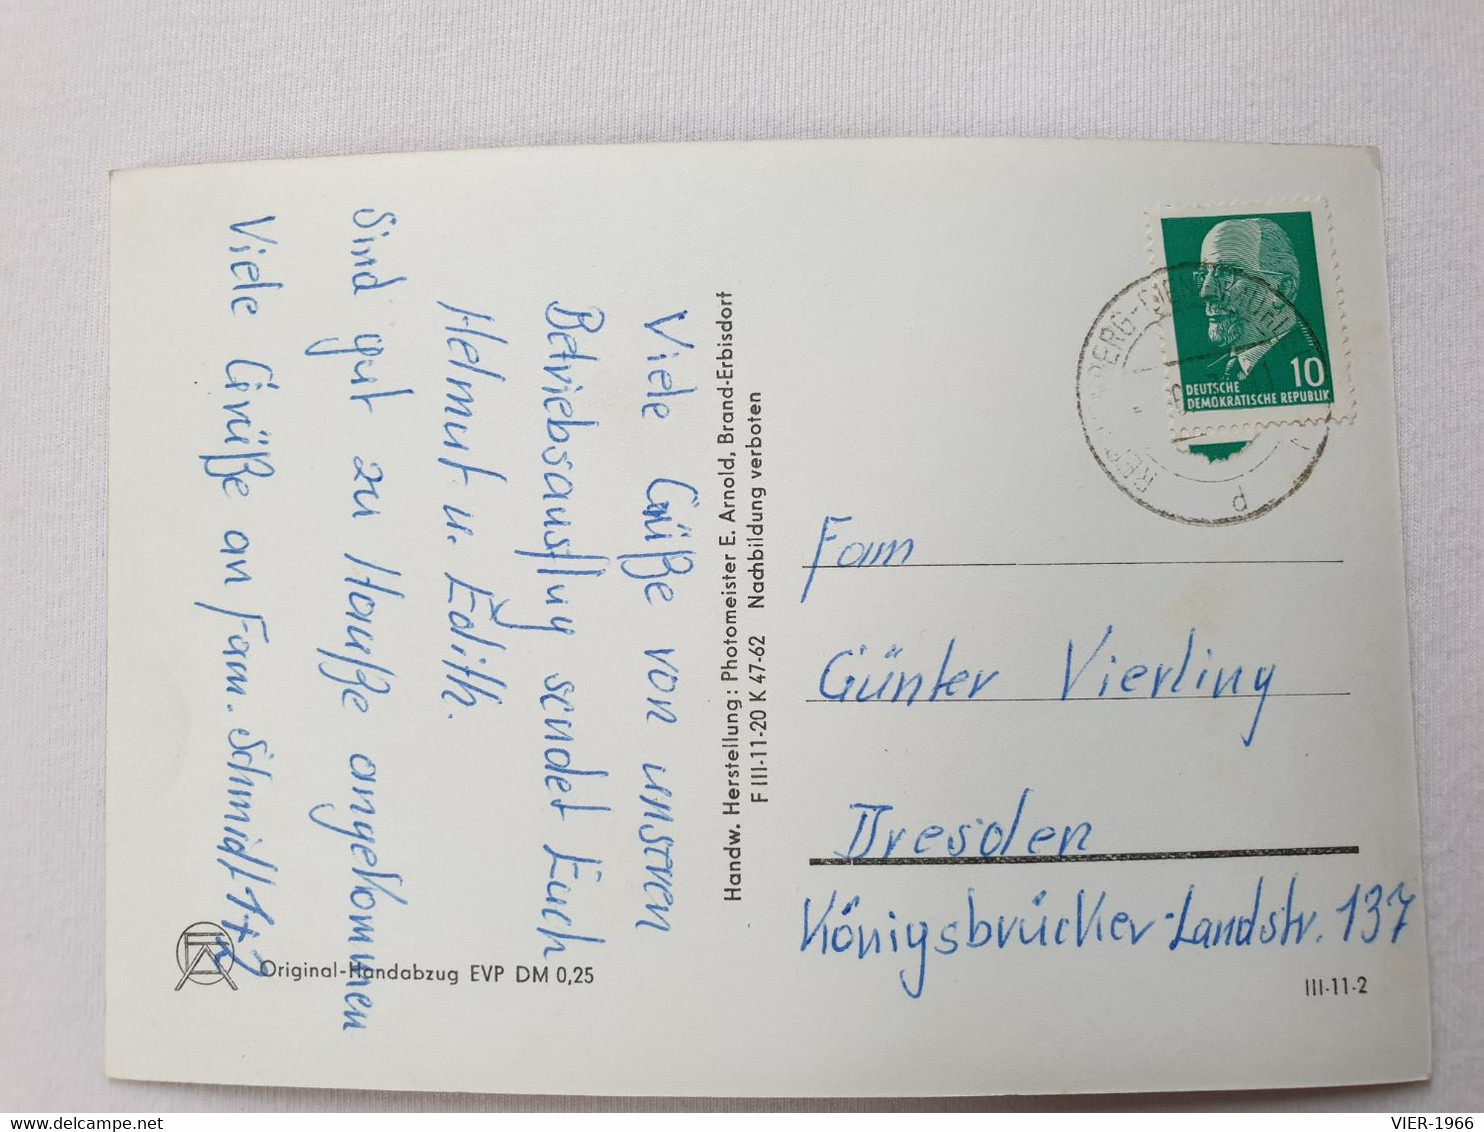 Viele Grüße von unseren
Betriebsausflug sendet Euch
Helmut u. Edith.
Sind gut zu Hauße angekommen
Viele Grüße an Fam. Schmidt
Handw. Herstellung: Photomeister E. Arnold, Brand-Erbisdorf
F III-11-20 K 47-62 Nachbildung verboten
10
DEUTSCHE
DEMOKRATISCHE REPUBLIK
Fam
Günter Vierling
Dresden
Königsbrücker-Landstr. 137
Original-Handabzug EVP DM 0,25
III-11-2
delcampe.net
VIER-1966